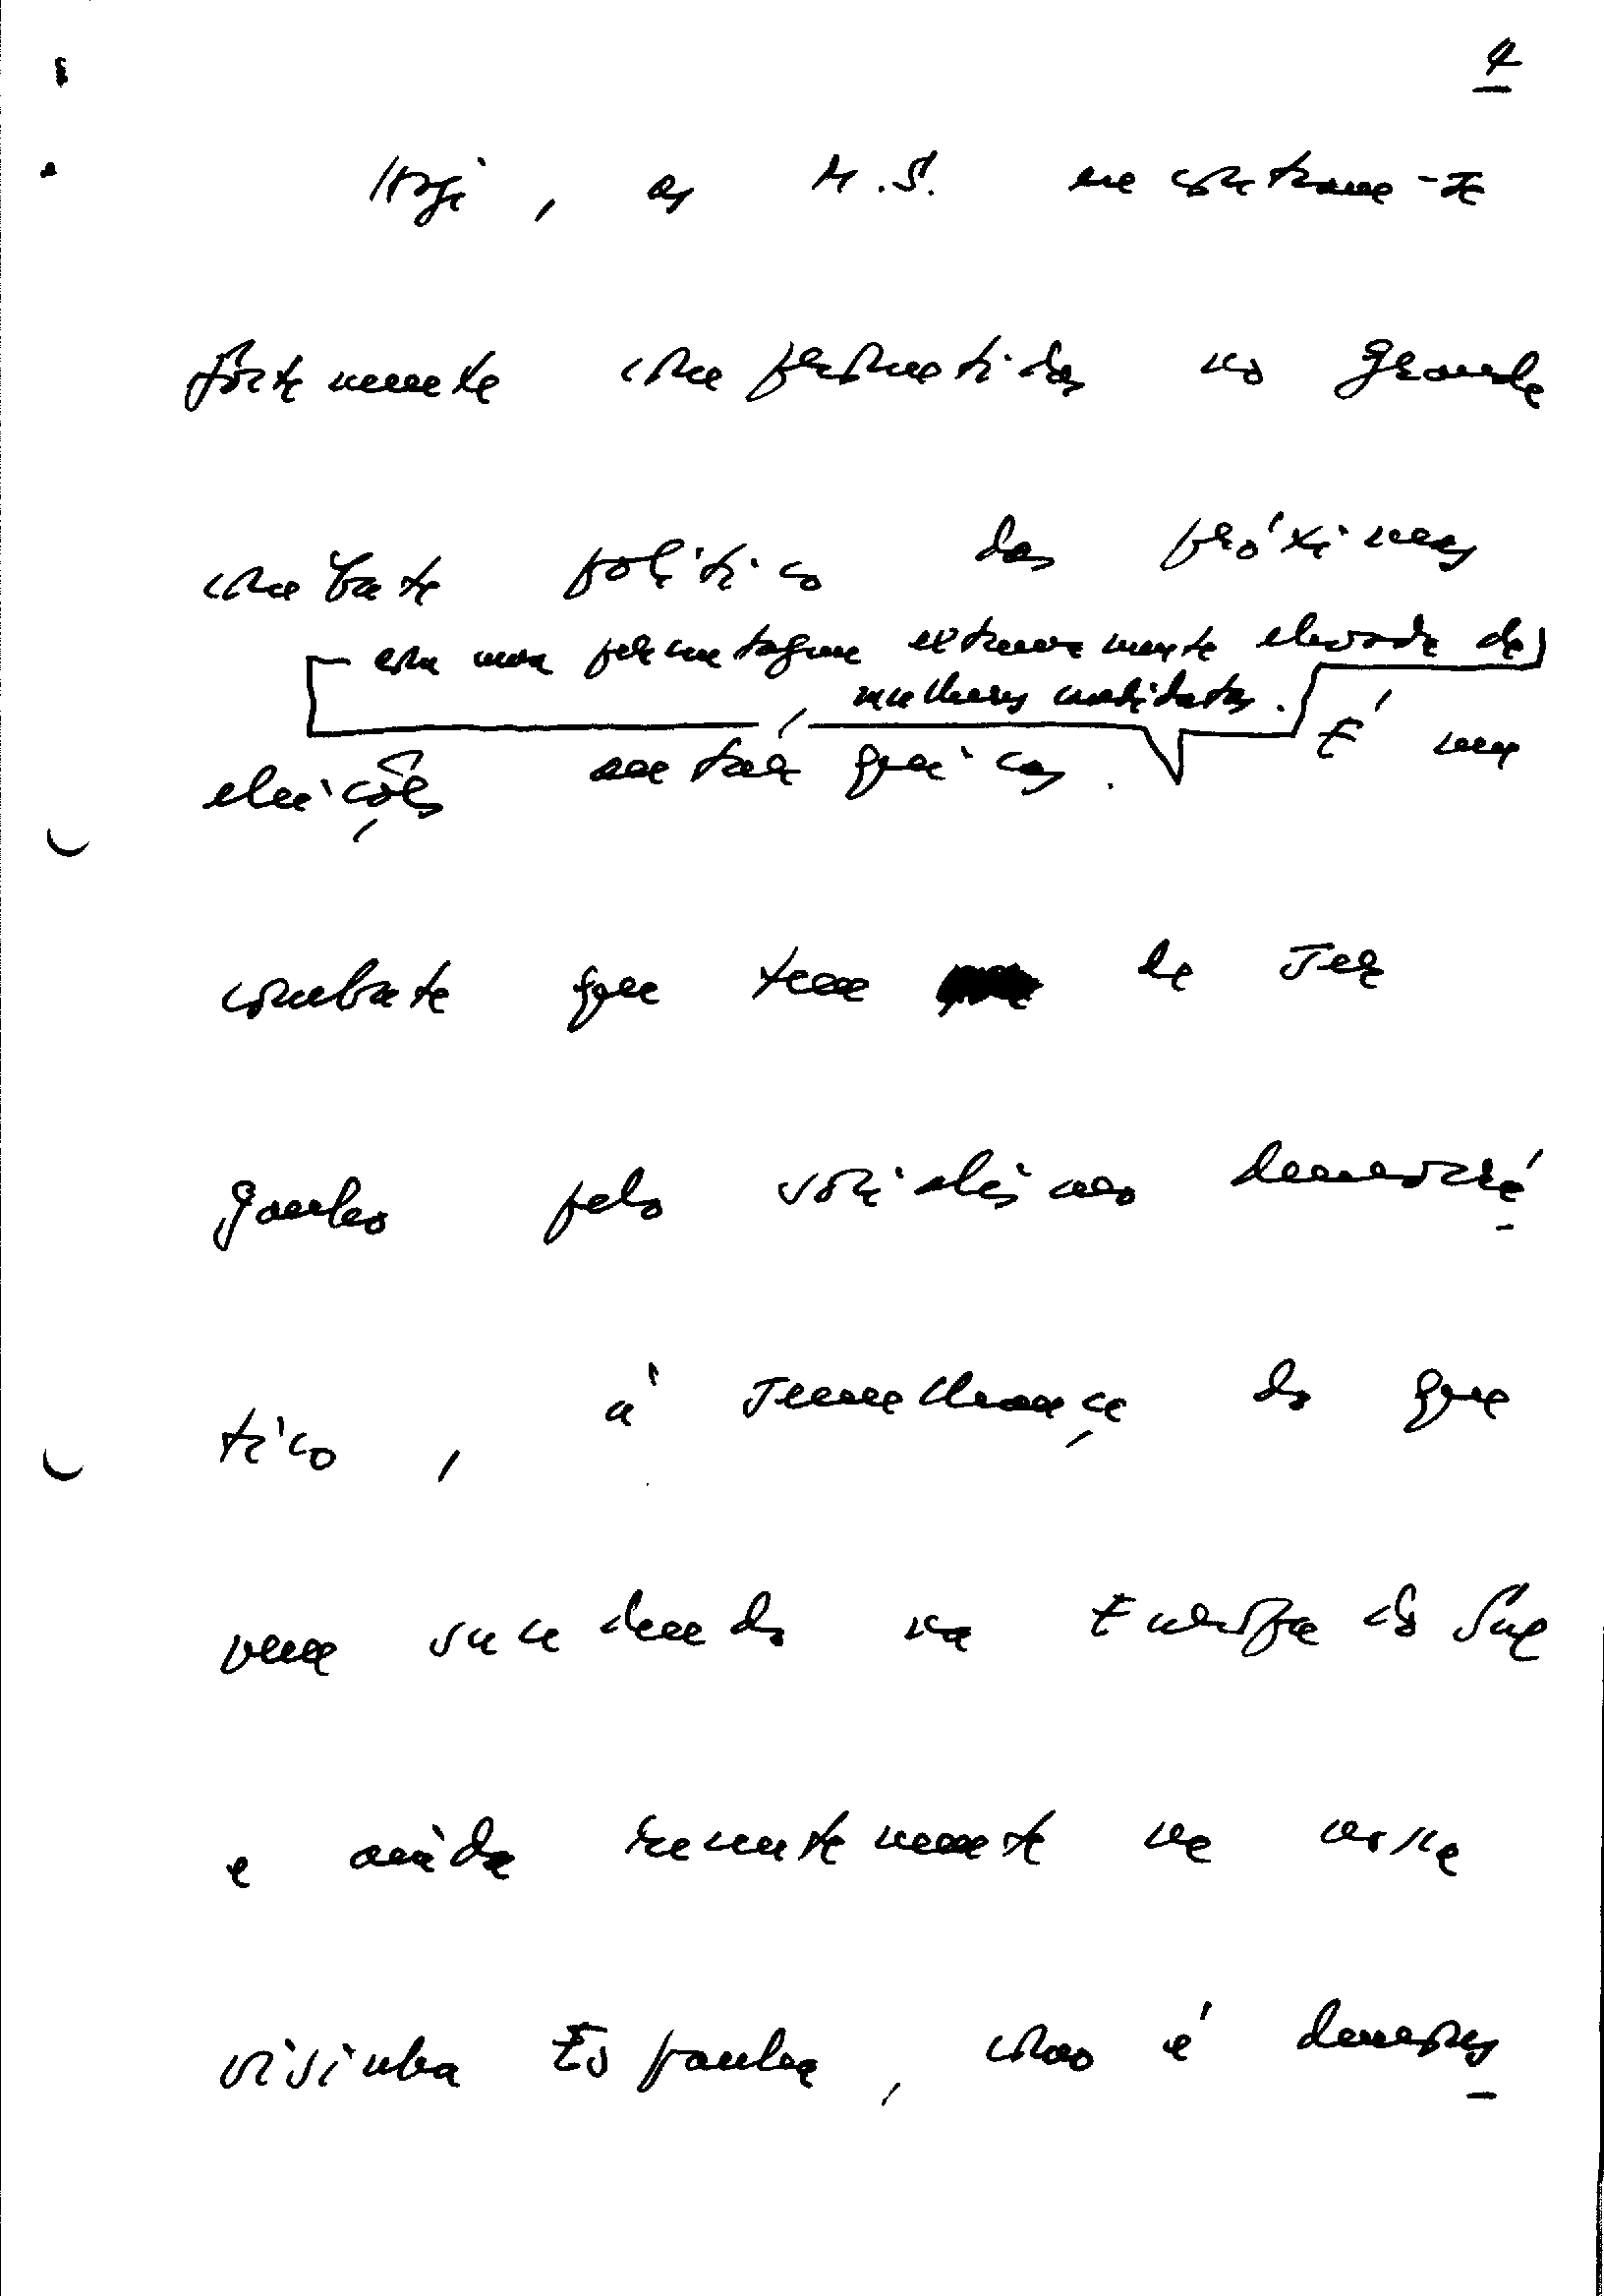 4
Hoje, as M.S. encontram-se
fortemente comprometidas no grande
combate político das próximas
com uma percentagem extremamente elevada de
mulheres candidatas.
eleições autárquicas. É um
combate que tem de ser
ganho pelo socialismo democrá-
tico, à semelhança do que
vem sucedendo na Europa do Sul
e ainda recentemente na nossa
visinha Espanha, como é demons-